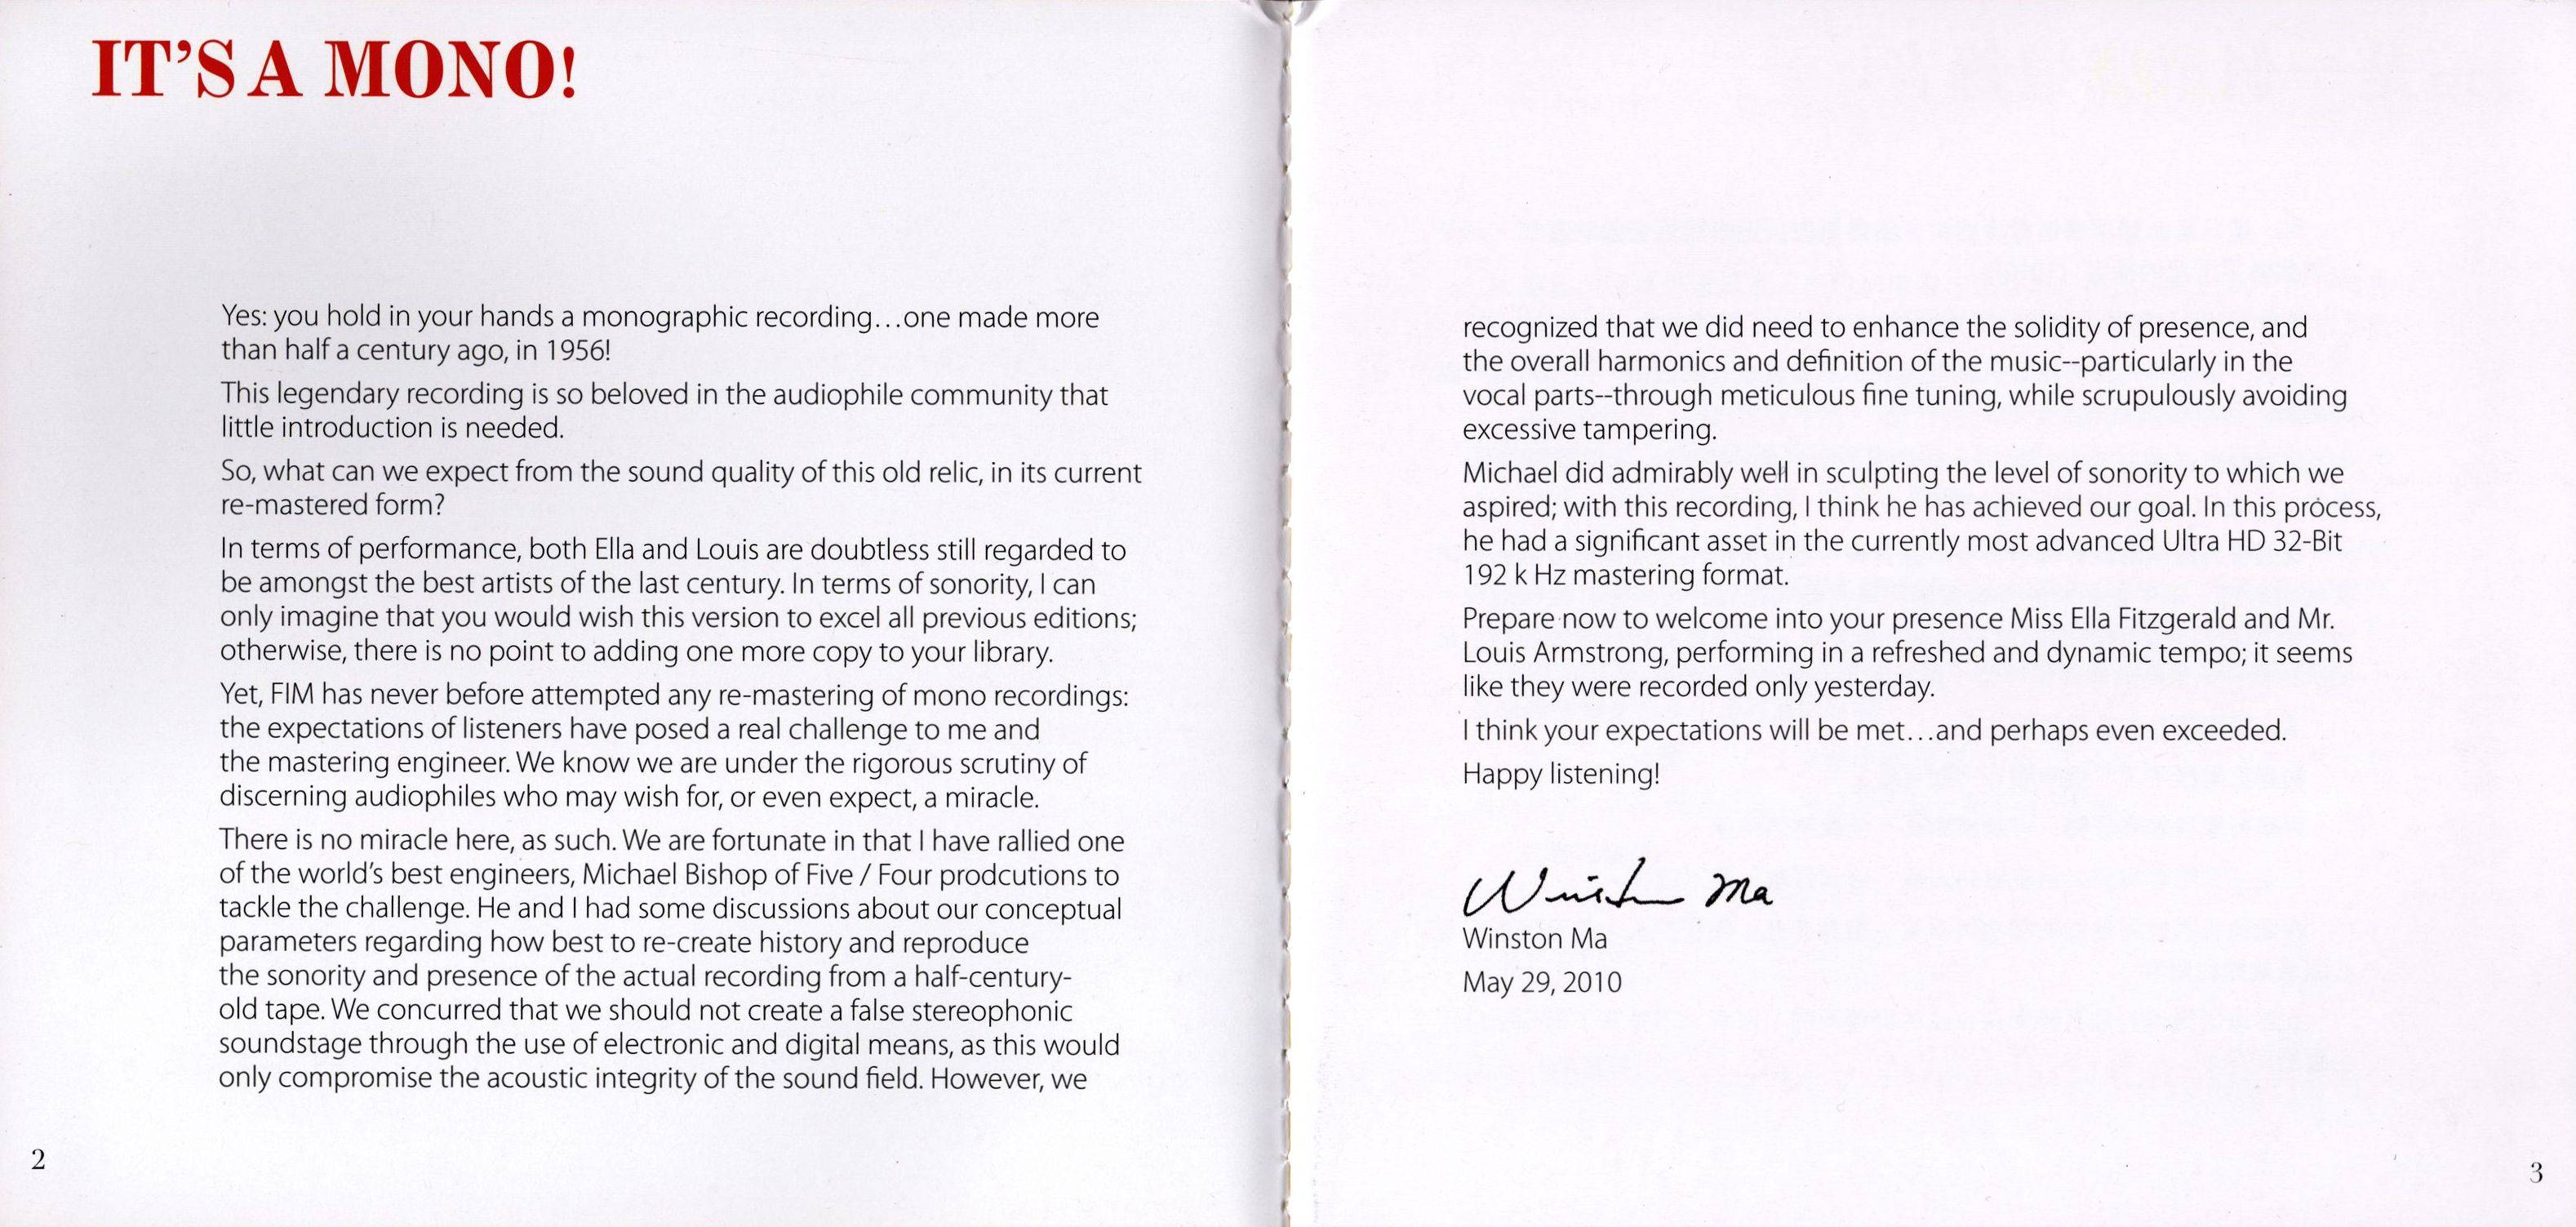 IT'S A MONO!
Yes: you hold in your hands a monographic recording...one made more
than half a century ago, in 1956!
This legendary recording is so beloved in the audiophile community that
little introduction is needed.
So, what can we expect from the sound quality of this old relic, in its current
re-mastered form?
In terms of performance, both Ella and Louis are doubtless still regarded to
be amongst the best artists of the last century. In terms of sonority, I can
only imagine that you would wish this version to excel all previous editions;
otherwise, there is no point to adding one more copy to your library.
Yet, FIM has never before attempted any re-mastering of mono recordings:
the expectations of listeners have posed a real challenge to me and
the mastering engineer. We know we are under the rigorous scrutiny of
discerning audiophiles who may wish for, or even expect, a miracle.
There is no miracle here, as such. We are fortunate in that I have rallied one
of the world's best engineers, Michael Bishop of Five / Four prodcutions to
tackle the challenge. He and I had some discussions about our conceptual
parameters regarding how best to re-create history and reproduce
the sonority and presence of the actual recording from a half-century-
old tape. We concurred that we should not create a false stereophonic
soundstage through the use of electronic and digital means, as this would
only compromise the acoustic integrity of the sound field. However, we
2
recognized that we did need to enhance the solidity of presence, and
the overall harmonics and definition of the music--particularly in the
vocal parts--through meticulous fine tuning, while scrupulously avoiding
excessive tampering.
Michael did admirably well in sculpting the level of sonority to which we
aspired; with this recording, I think he has achieved our goal. In this process,
he had a significant asset in the currently most advanced Ultra HD 32-Bit
192 k Hz mastering format.
Prepare now to welcome into your presence Miss Ella Fitzgerald and Mr.
Louis Armstrong, performing in a refreshed and dynamic tempo; it seems
like they were recorded only yesterday.
I think your expectations will be met...and perhaps even exceeded.
Happy listening!
Winston Ma
Winston Ma
May 29, 2010
3